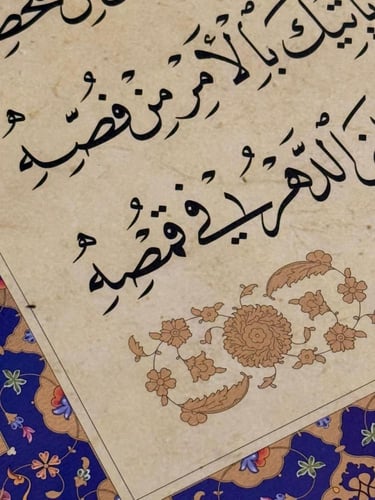 يَأتيكَ بِالْأَمْرِ مِنْ فَصِّهِ
الدَّهْرُ في قُمْصِهِ